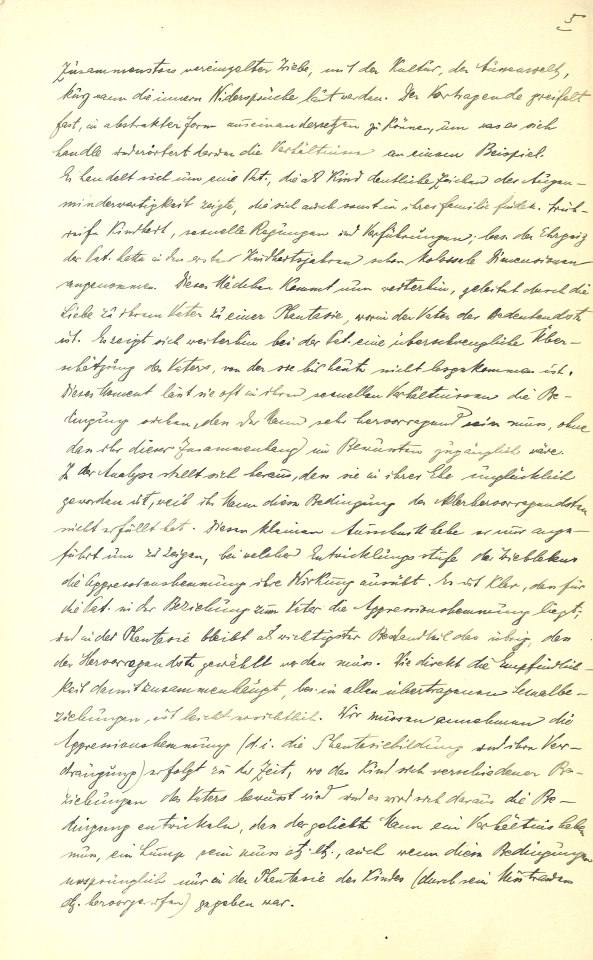 5
Zusammenstoss vereinzelter Triebe, mit der Kultur, der Aussenwelt,
kurz wenn die innern Widersprüche laut werden. Der Vortragende zweifelt
fast, in abstrakter Form auseinandersetzen zu können, um was es sich
handle und erörtert daran die Verhältnisse an einem Beispiel.
Es handelt sich um eine Pat., die als Kind deutliche Zeichen der Augen-
minderwertigkeit zeigte, die sich auch sonst in ihrer Familie finden. Früh-
reife Kindheit, sexuelle Regungen und Verführungen; bes. der Ehrgeiz
der Pat. hatte in den ersten Kindheitsjahren schon kolossale Dimensionen
angenommen. Dieses Mädchen kommt nun weiterhin, geleitet durch die
Liebe zu ihrem Vater zu einer Phantasie, worin der Vater der Bedeutendste
ist. Es zeigt sich weiterhin bei der Pat. eine überschwengliche Über-
schätzung des Vaters, von der sie bis heute nicht losgekommen ist.
Dieses Moment lässt sie oft in ihren sexuellen Verhältnissen die Be-
dingung suchen, dass der Mann sehr hervorragend sein muss, ohne
dass ihr dieser Zusammenhang im Bewussten zugänglich wäre.
In der Analyse stellt sich heraus, dass sie in ihrer Ehe unglücklich
geworden ist, weil ihr Mann diese Bedingung des Allerhervorragendsten
nicht erfüllt hat. Diesen kleinen Ausschnitt habe er nur ange-
führt um zu zeigen, bei welcher Entwicklungsstufe des Trieblebens
die Aggressionshemmung ihre Wirkung ausübt. Es ist klar, dass für
die Pat. in der Beziehung zum Vater die Aggressionshemmung liegt;
und in der Phantasie bleibt als wichtigster Bestandteil das übrig, dass
der Hervorragendste gewählt werden muss. Wie direkt die Empfindlich-
keit damit zusammenhängt, bes. in allen übertragenen Sexualbe-
ziehungen, ist leicht ersichtlich. Wir müssen annehmen die
Aggressionshemmung (d. i. die Phantasiebildung und ihre Ver-
drängung) erfolgt zu der Zeit, wo das Kind sich verschiedener Be-
ziehungen des Vaters bewusst wird und es wird sich daraus die Be-
dingung entwickeln, dass der geliebte Mann ein Verhältnis haben
muss, ein Lump sein muss etz. etz., auch wenn diese Bedingungen
ursprünglich nur in der Phantasie des Kindes (durch sein Misstrauen
etz. hervorgerufen) gegeben war.